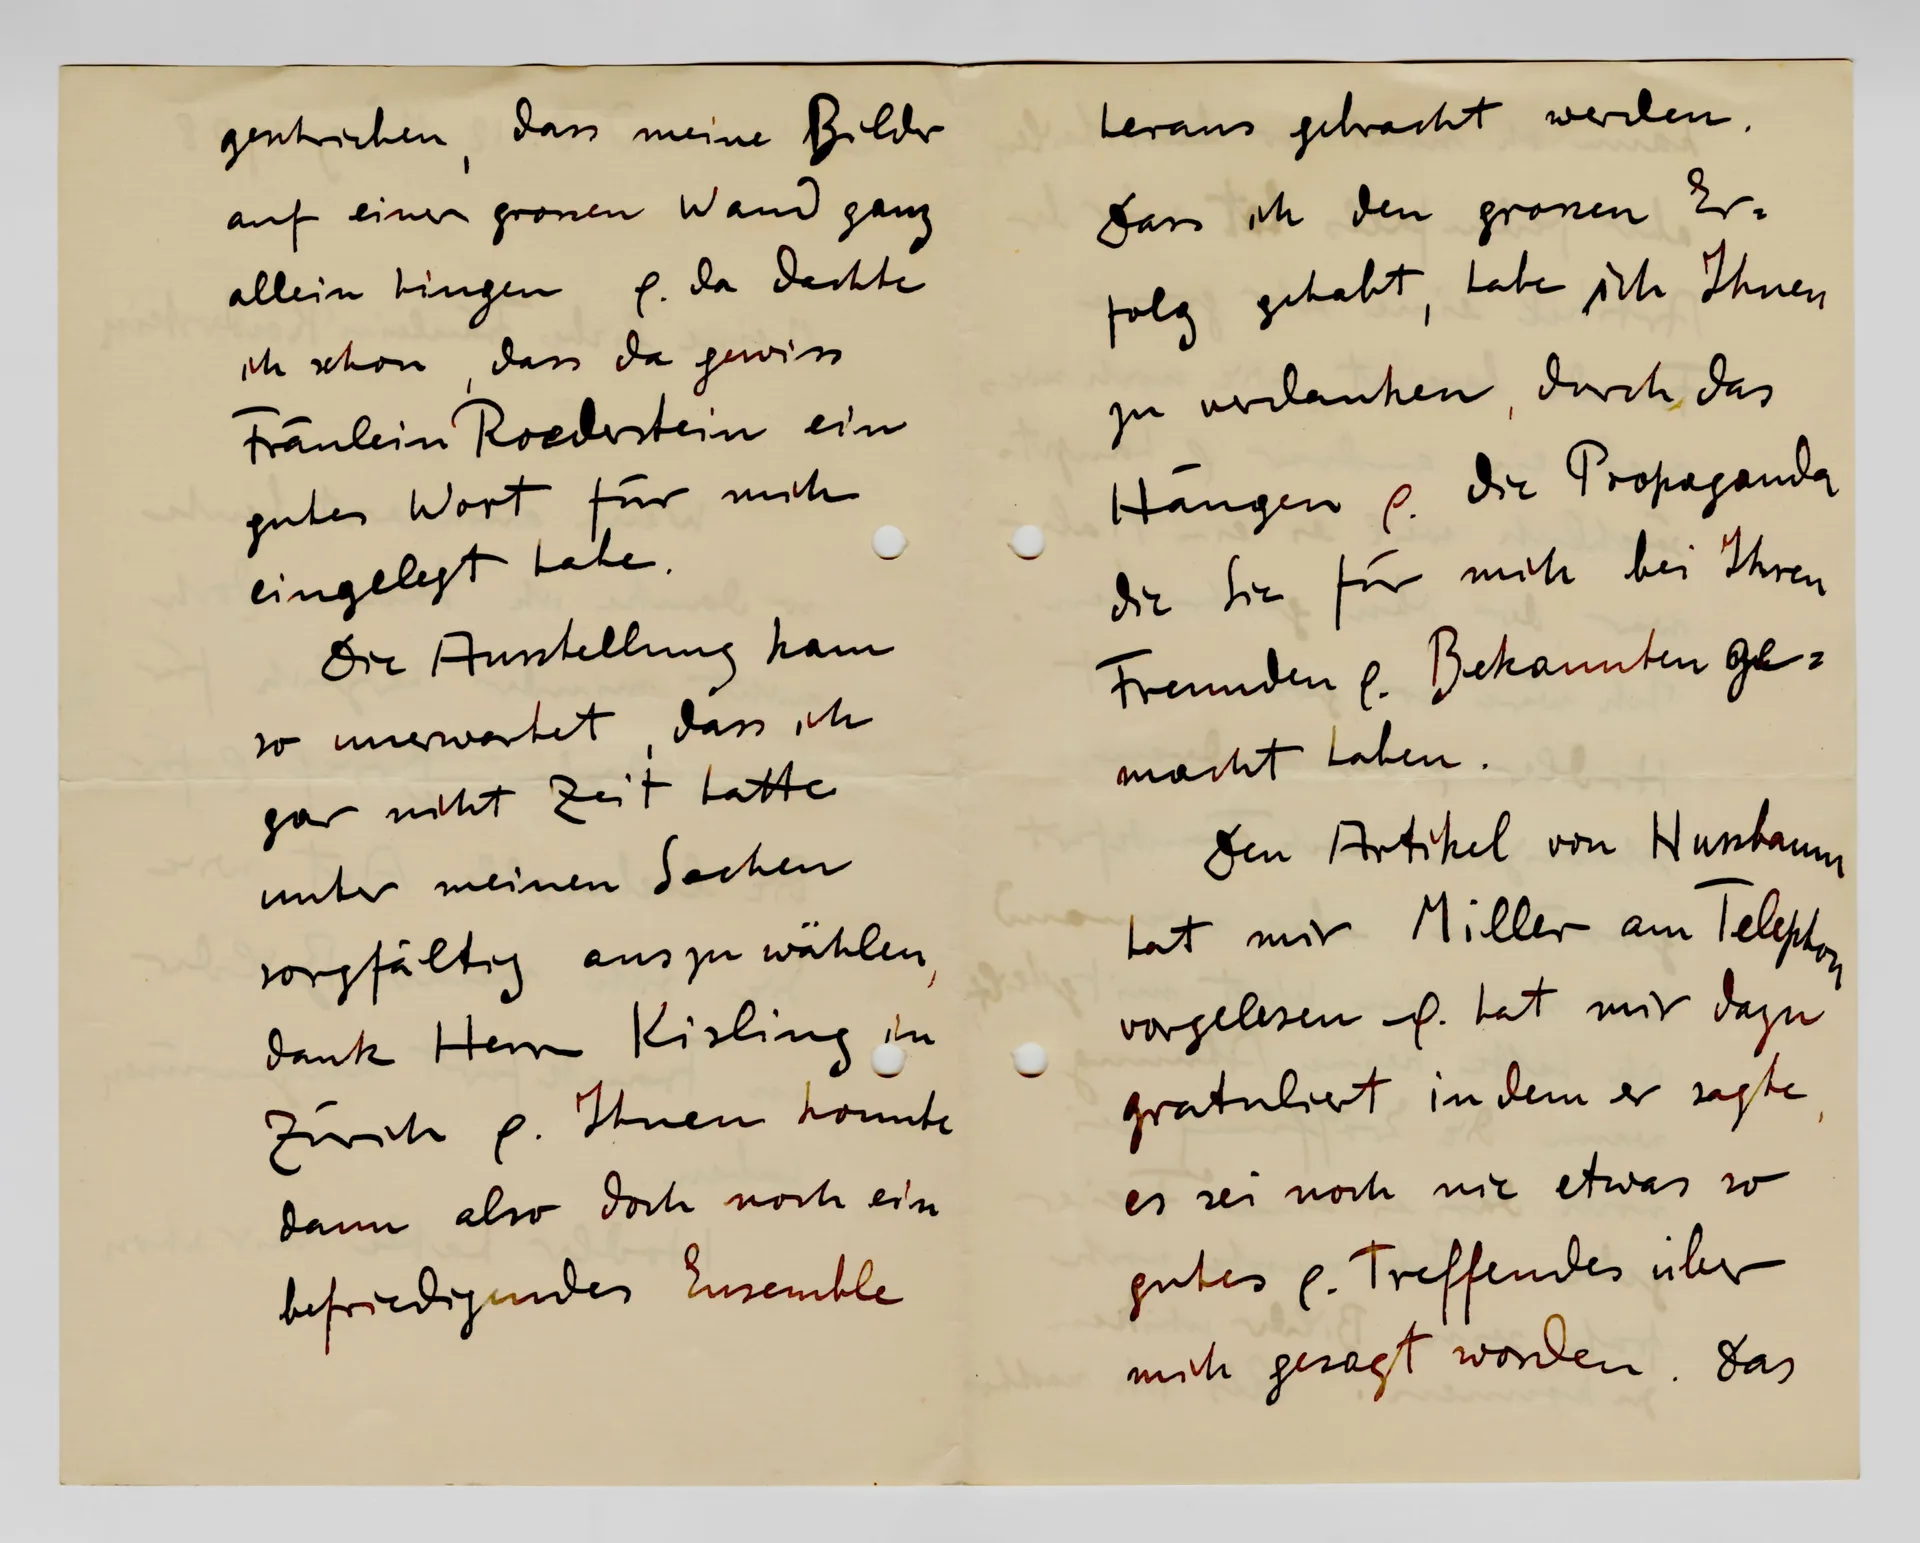 geschrieben, dass meine Bilder
auf einer grossen Wand ganz
allein hingen & da dachte
ich schon, dass da gewiss
Fräulein Roederstein ein
gutes Wort für mich
eingelegt habe.
Die Ausstellung kam
so unerwartet, dass ich
gar nicht Zeit hatte
unter meinen Sachen
sorgfältig auszuwählen,
dank Herrn Kisling in
Zürich & Ihnen konnte
dann also doch noch ein
befriedigendes Ensemble
heraus gebracht werden.
Dass ich den grossen Er=
folg gehabt, habe ich Ihnen
zu verdanken, durch das
Hängen & die Propaganda
die Sie für mich bei Ihren
Freunden & Bekannten ge=
macht haben.
Den Artikel von Nussbaum
hat mir Miller am Telephon
vorgelesen & hat mir dazu
gratuliert indem er sagte,
es sei noch nie etwas so
gutes & Treffendes über
mich gesagt worden. Das